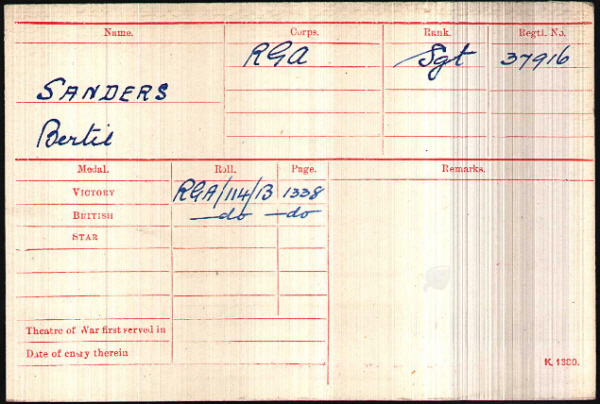 Name. Corps. Rank. Regtl. No.
RGA Sgt 37916
SANDERS
Bertie
Medal. Roll. Page. Remarks.
VICTORY RGA/114/B 1338
BRITISH —do —do
STAR
Theatre of War first served in
Date of entry therein
K. 1380.